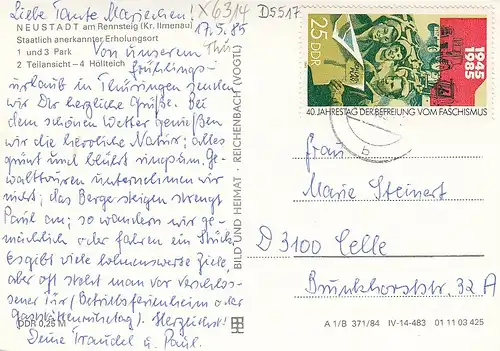 Liebe Tante Mariechen!
X6314
D5517
17.5.85
NEUSTADT am Rennsteig (Kr. Ilmenau)
Staatlich anerkannter Erholungsort
1 und 3 Park
2 Teilansicht – 4 Höllteich
Von unserem
Frühlings-
urlaub in Thüringen senden
wir Dir herzliche Grüße. Bei
dem schönen Wetter genießen
wir die herrliche Natur; alles
grünt und blüht ringsum. Ge-
walttouren unternehmen wir
nicht; das Bergesteigen strengt
Paul an; so wandern wir ge-
mächlich oder fahren ein Stück.
Es gibt viele lohnenswerte Ziele,
aber oft steht man vor verschlos-
sener Tür (Betriebsferienheim oder
Gaststättenruhetag). Herzlichst!
Deine Traudel u. Paul.
DDR 0,25 M
BILD UND HEIMAT · REICHENBACH (VOGTL)
25 DDR
1945
1985
40. JAHRESTAG DER BEFREIUNG VOM FASCHISMUS
Frau
Marie Steinert
D 3100 Celle
Brunkhorststr. 32 A
A 1/B 371/84 IV-14-483 01 11 03 425